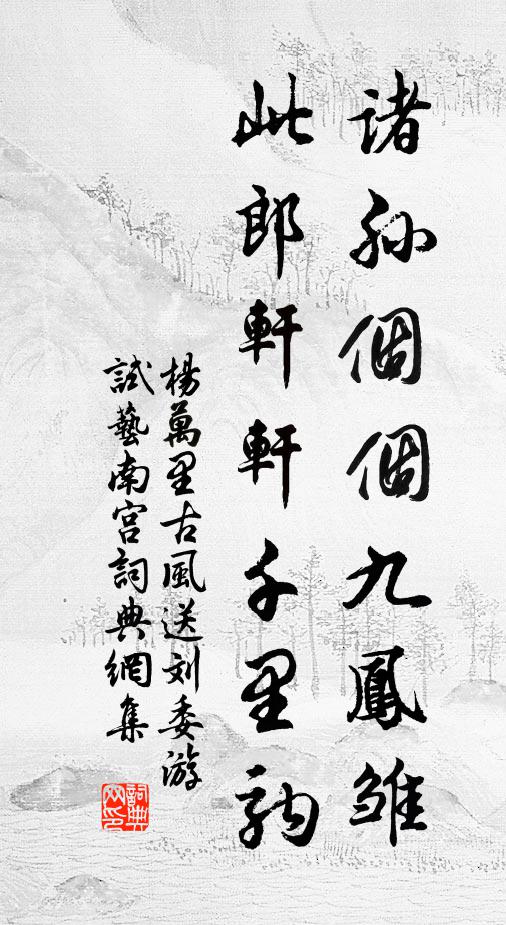 諸孫個個九鳳雛
此郎軒軒千里駒
楊萬里古風送刘委游
試藝南宮詞典網集
詞典
网印